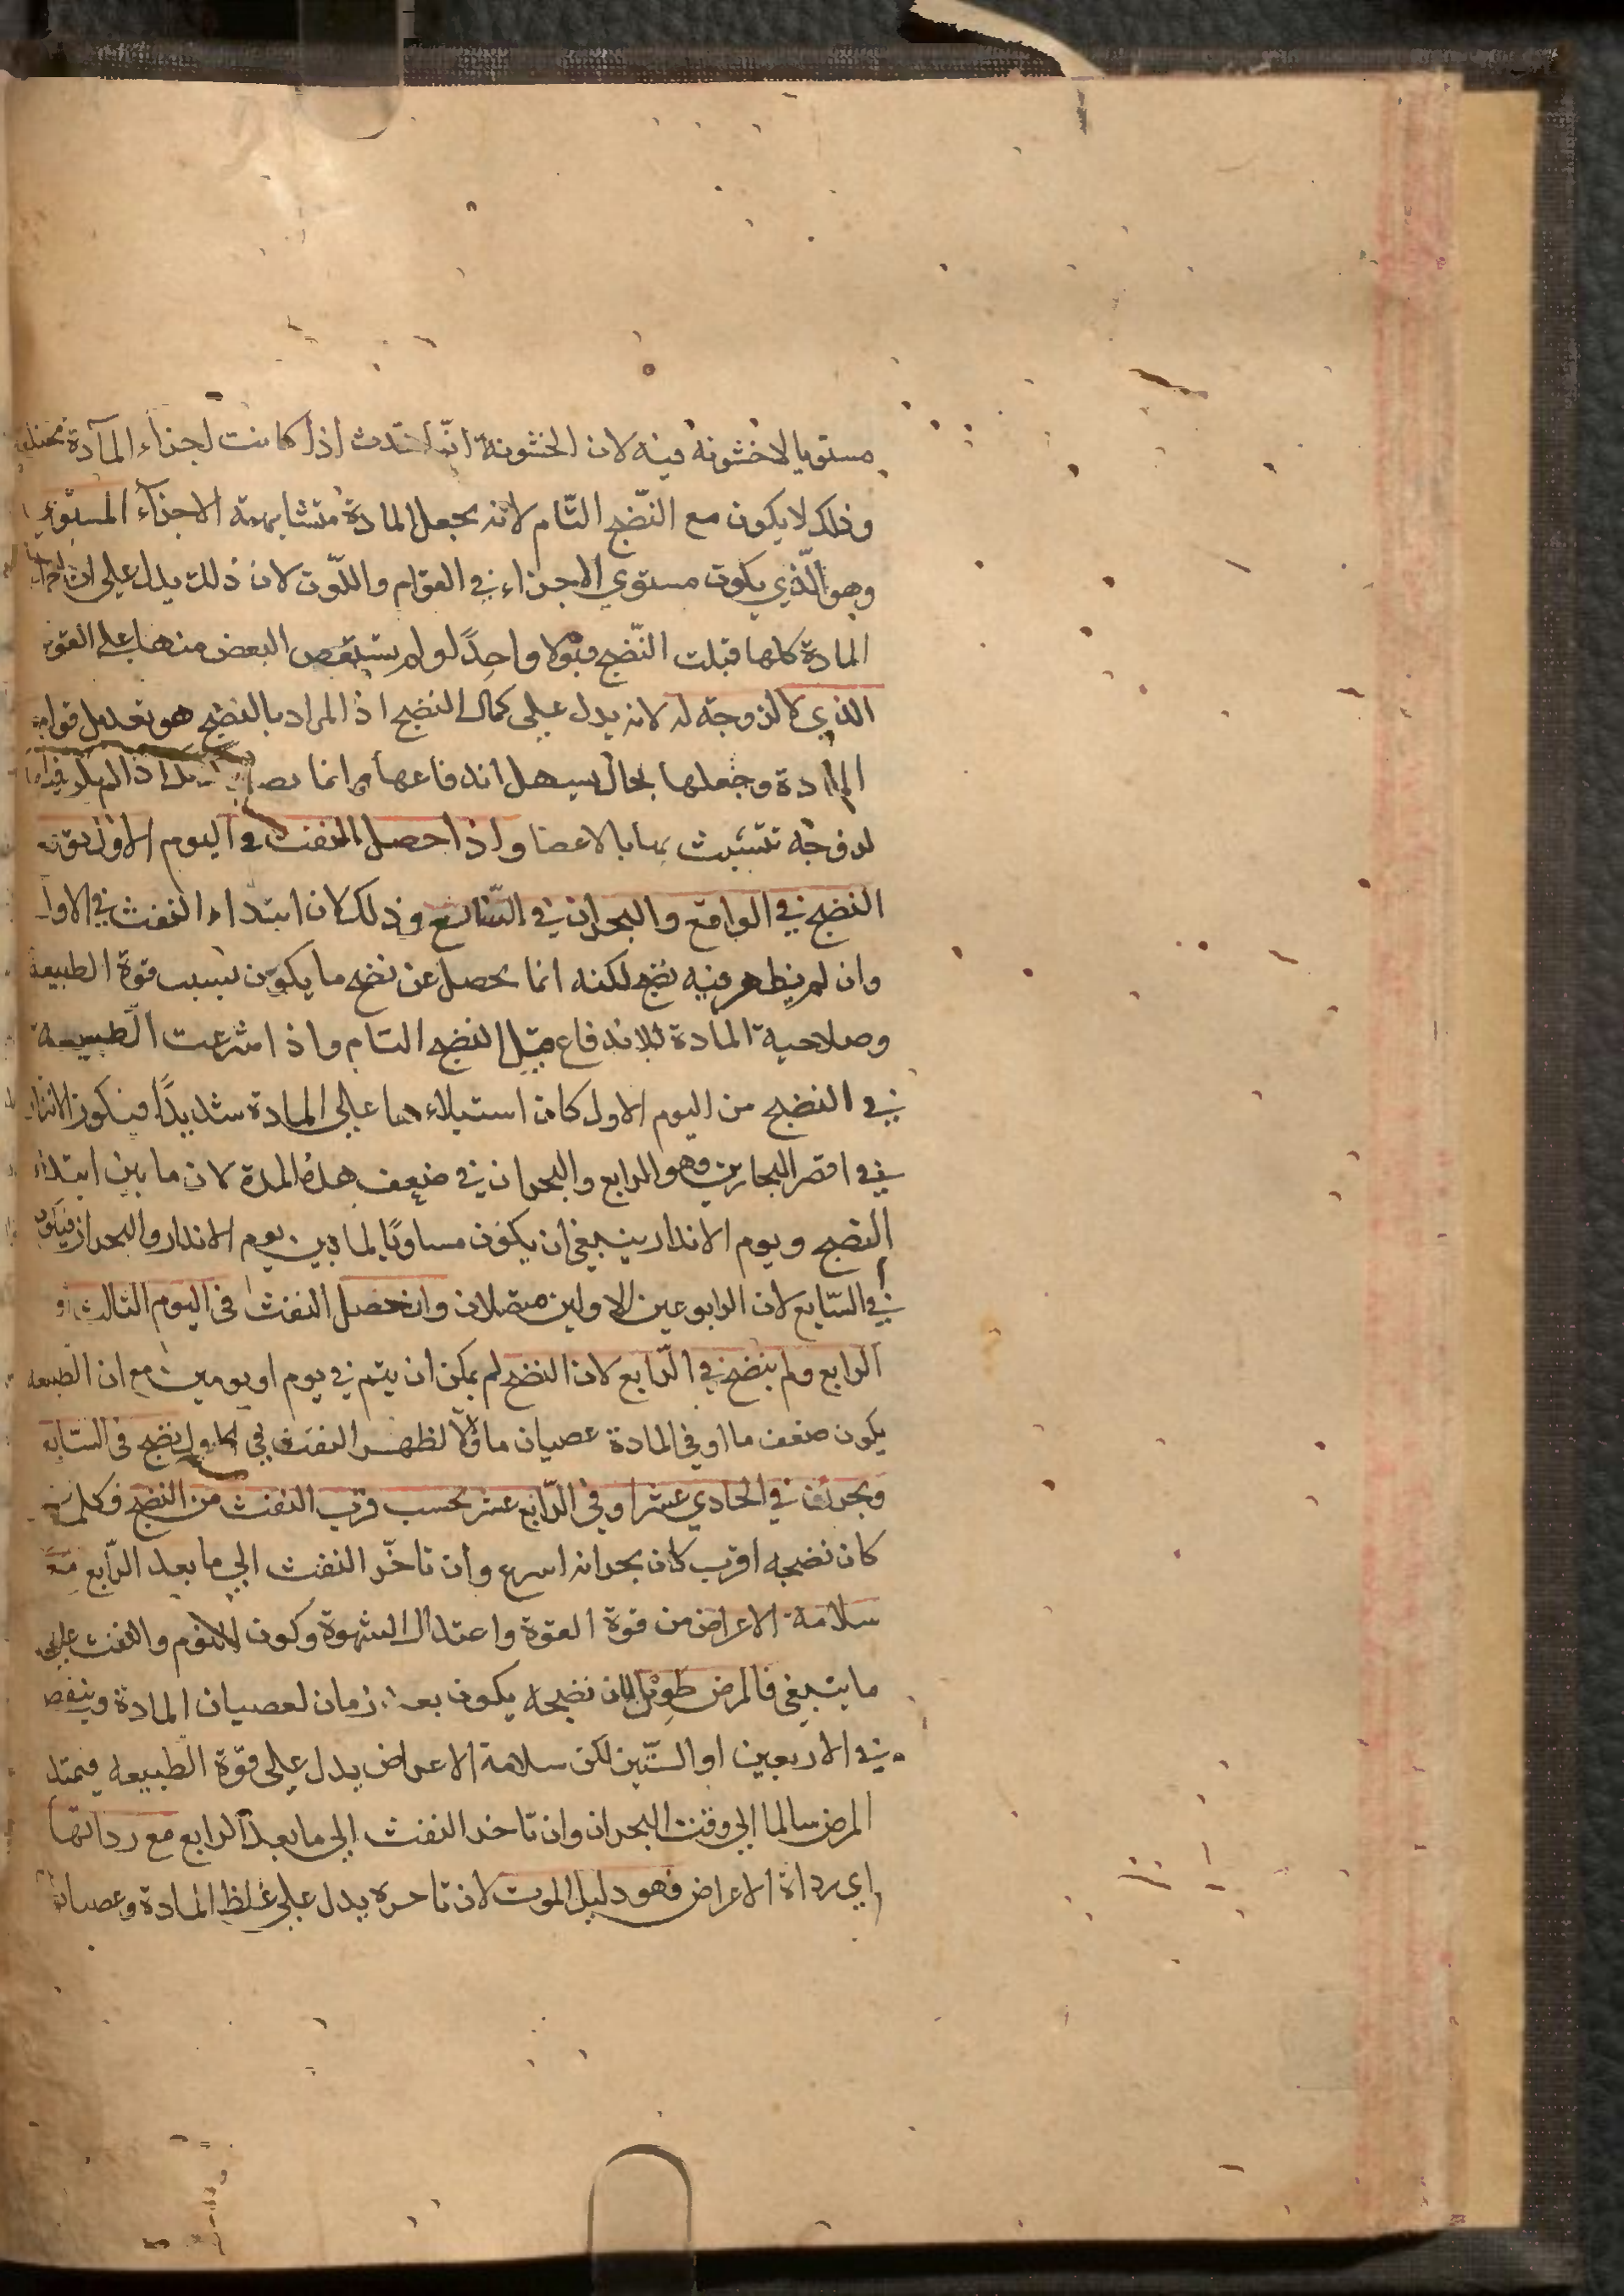 مستويا لاخشونة فيه لان الخشونة انما تحدث اذا كانت اجزاء المآدة مختلفة
وذلك لا يكون مع النّضج التّام لانه يجعل المادة متشابهة الاجزآء المستوي
وهو الّذي يكون مستوي الاجزاء في القوام واللّون لان ذلك يدل علي ان اجزاء
المادة كلها قبلت النّضج قبولا واحدًا ولم يستعص البعض منها علي القوة
الذي لا لزوجة له لانه يدل علي كمال النضج اذ المراد بالنضج هو تعديل قوام
المادة وجعلها بحال يسهل اندفاعها وانما اذا لم يكن فيها
لزوجة تتشبث بها بالاعضا واذا حصل النفث في اليوم الاول توقع
النضج في الرابع والبحران في السّابع وذلك لان ابتداء النفث في الاول
وان لم يظهر فيه نضج لكنه انما يحصل عن نضج ما يكون بسبب قوة الطبيعة
وصلاحية المادة للاندفاع قبل النضج التام واذا شرعت الطبيعة
في النضج من اليوم الاول كان استيلاءها علي المادة شديدًا فيكون الانذار
في اقصر البحارين وهو الرابع والبحران في ضعف هذه المدة لان ما بين ابتداء
النضج ويوم الانذار ينبغي ان يكون مساويًا لما بين يوم الانذار والبحران فيكون
في السّابع لان الرابوعين الاولين متصلان وان حصل النفث في اليوم الثالث او
الرابع ولم ينضج في الرّابع لان النضج لم يمكن ان يتم في يوم او يومين مع ان الطبيعه
يكون ضعف ما او في المادة عصيان ما والا لظهر النفث في الاول نضج في السّابع
وبحرانه في الحادي عشر او في الرّابع عشر بحسب قرب النفث من النضج فكلما
كان نضجه اقرب كان بحرانه اسرع وان تاخّر النفث الي ما بعد الرّابع مع
سلامة الاعراض من قوة القوة واعتدال الشهوة وكون النوم والنفث علي
ما ينبغي فالمرض طويل لان نضجه يكون بعد زمان لعصيان المادة وينقص
في الاربعين او الستّين لكن سلامة الاعراض يدل علي قوّة الطّبيعه فيمتد
المرض سالما الي وقت البحران وان تاخر النفث الي ما بعد الرابع مع رداتها
اي رداة الاعراض فهو دليل الموت لان تاخره يدل علي غلظ المادة وعصيانها